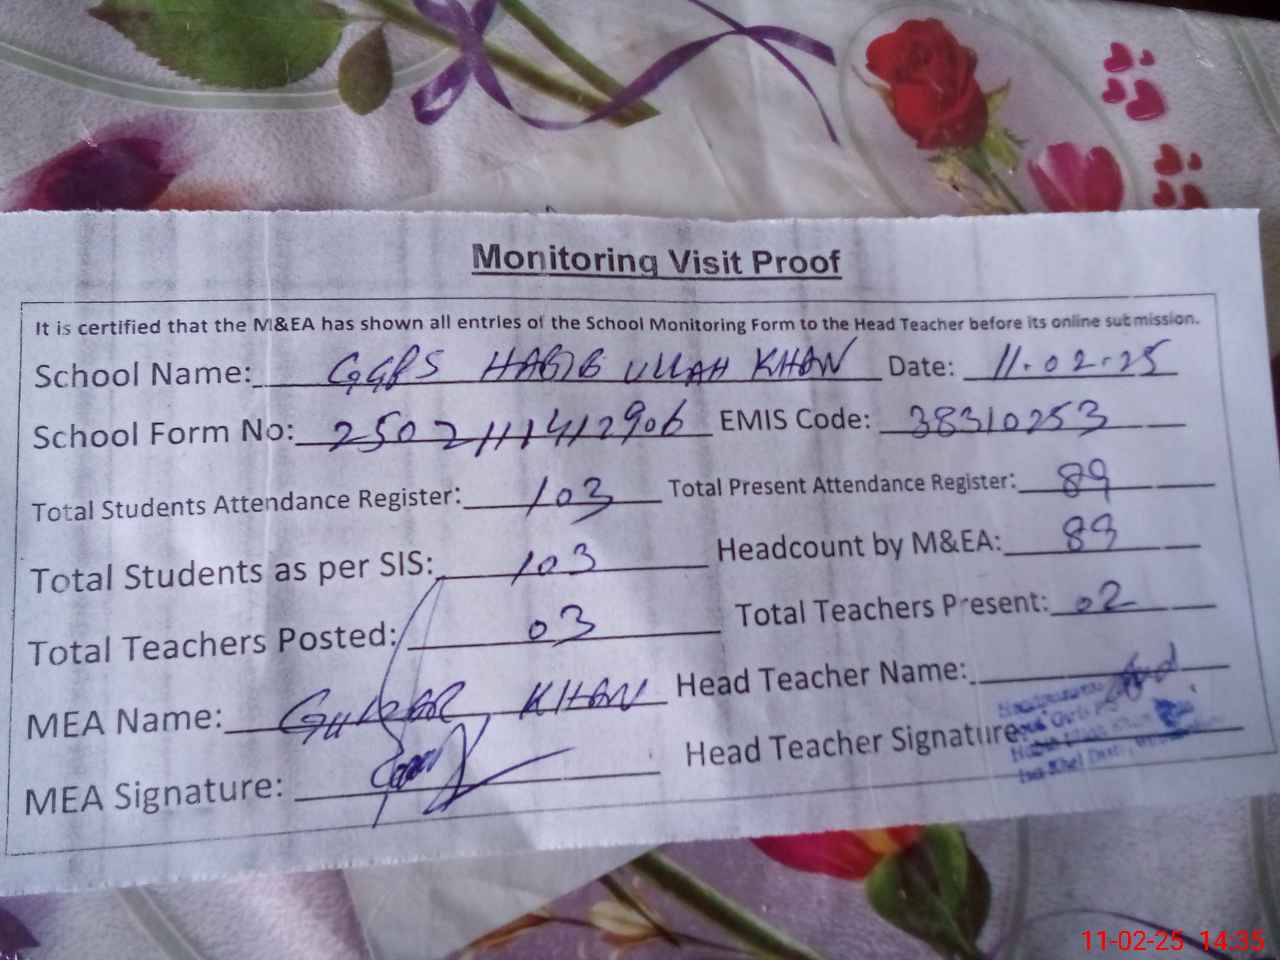 Monitoring Visit Proof
It is certified that the M&EA has shown all entries of the School Monitoring Form to the Head Teacher before its online submission.
School Name: GGPS HABIB ULLAH KHAN Date: 11.02.25
School Form No: 25021111412906 EMIS Code: 38310253
Total Students Attendance Register: 103 Total Present Attendance Register: 89
Total Students as per SIS: 103 Headcount by M&EA: 89
Total Teachers Posted: 03 Total Teachers Present: 02
MEA Name: KHAN Head Teacher Name:
MEA Signature: Head Teacher Signature
11-02-25 14:35